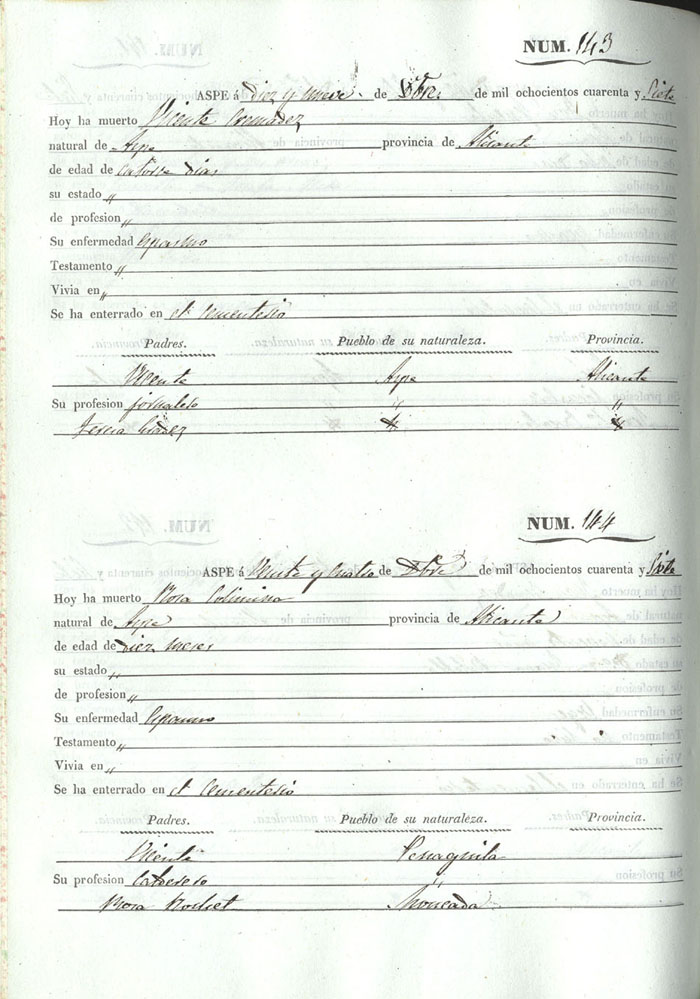 NUM. 143
ASPE á Diez y nueve de Dbre. de mil ochocientos cuarenta y Siete
Hoy ha muerto Vicente
natural de Aspe provincia de Alicante
de edad de catorse dias
su estado "
de profesion "
Su enfermedad espasmo
Testamento "
Vivia en "
Se ha enterrado en el Cementerio
Padres. Pueblo de su naturaleza. Provincia.
Vicente Aspe Alicante
Su profesion jornalero " "
NUM. 144
ASPE á Veinte y cuatro de Dbre de mil ochocientos cuarenta y Siete
Hoy ha muerto Rosa Colimina
natural de Aspe provincia de Alicante
de edad de Diez meses
su estado "
de profesion "
Su enfermedad Espasmo
Testamento "
Vivia en "
Se ha enterrado en el Cementerio
Padres. Pueblo de su naturaleza. Provincia.
Vicente Penaguila
Su profesion "
Rosa Moncada